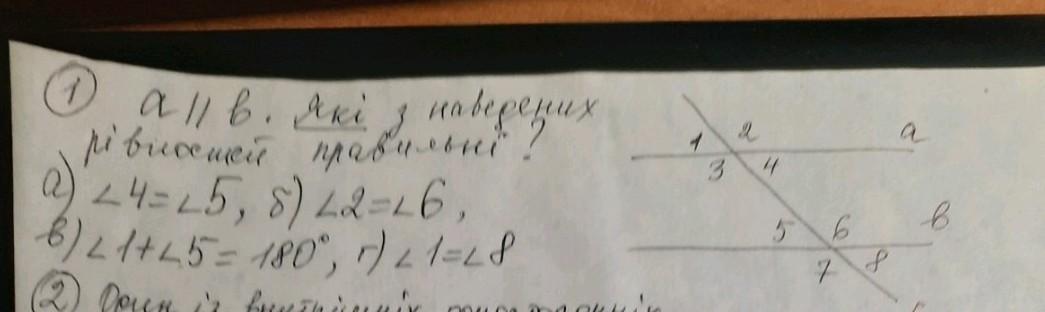 1 a || в. Які з наведених
рівностей правильні?
а) ∠4=∠5, б) ∠2=∠6,
в) ∠1+∠5=180°, г) ∠1=∠8
1 2 a
3 4
5 6 в
7 8
2 Один із внутрішніх